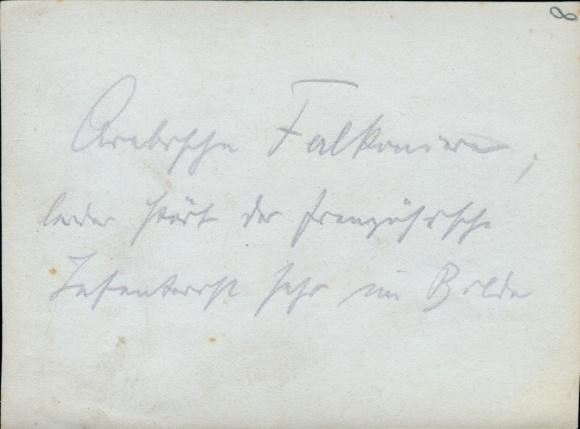 8
Arabische Falkoniere,
leider stört der französische
Infanterist sehr im Bilde